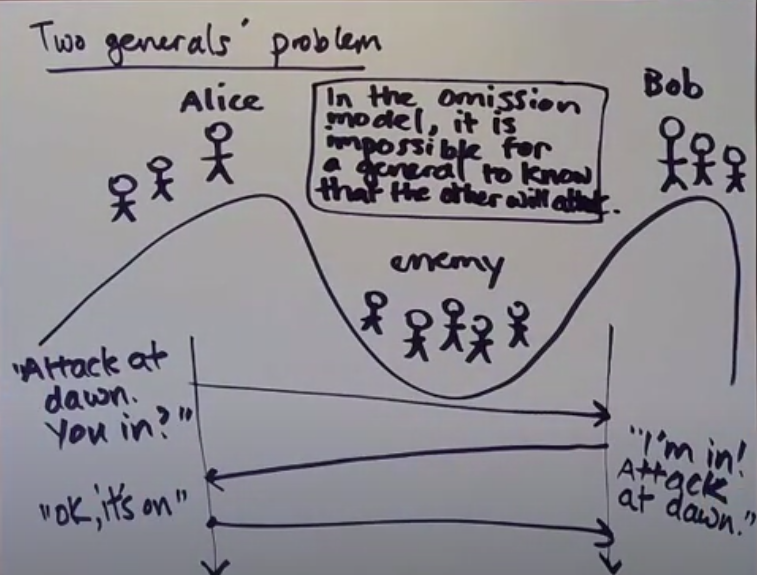 Two generals' problem
Alice
In the omission
model, it is
impossible for
a general to know
that the other will attack.
Bob
enemy
"Attack at
dawn.
You in?"
"I'm in!
Attack
at dawn."
"OK, it's on"